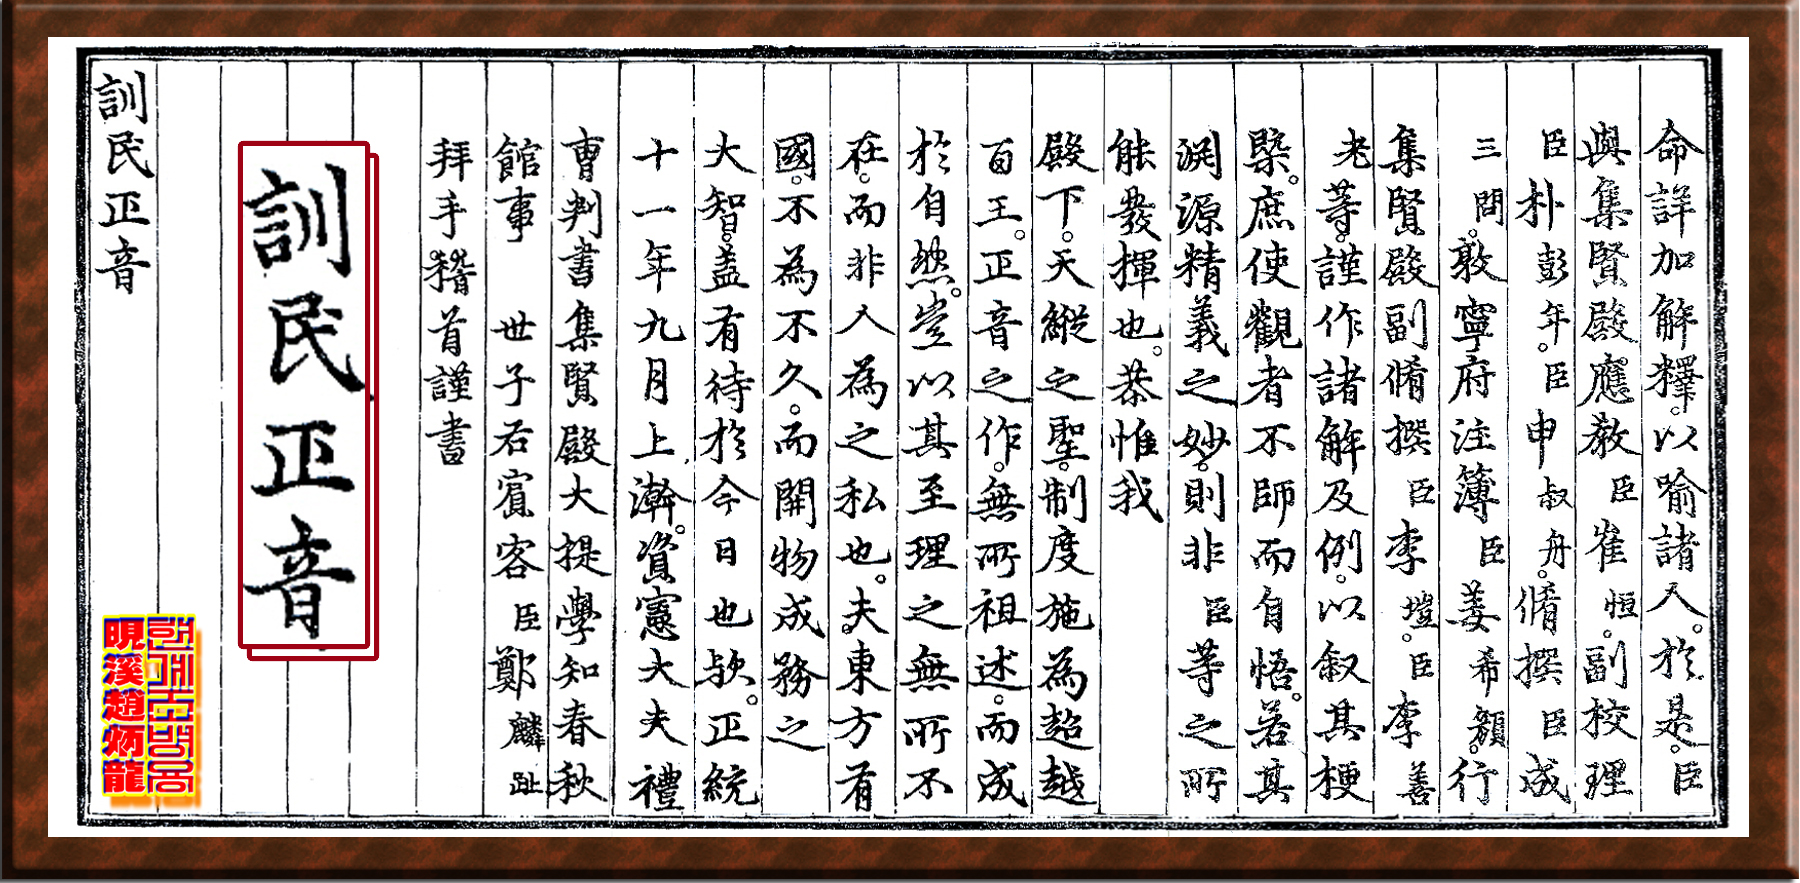 命詳加解釋。以喩諸人。於是。臣
與集賢殿應教臣崔恒。副校理
臣朴彭年。臣申叔舟。脩撰臣成
三問。敦寧府注簿臣姜希顔。行
集賢殿副脩撰臣李塏。臣李善
老等。謹作諸解及例。以叙其梗
槩。庶使觀者不師而自悟。若其
渕源精義之妙。則非臣等之所
能發揮也。恭惟我
殿下。天縱之聖。制度施為超越
百王。正音之作。無所祖述。而成
於自然。豈以其至理之無所不
在。而非人為之私也。夫東方有
國。不為不久。而開物成務之
大智。盖有待於今日也欤。正統
十一年九月上澣。資憲大夫禮
曹判書集賢殿大提學知春秋
館事 世子右賔客臣鄭麟趾
拜手稽首謹書
訓民正音
訓民正音
현계조병용
晛溪趙炳龍